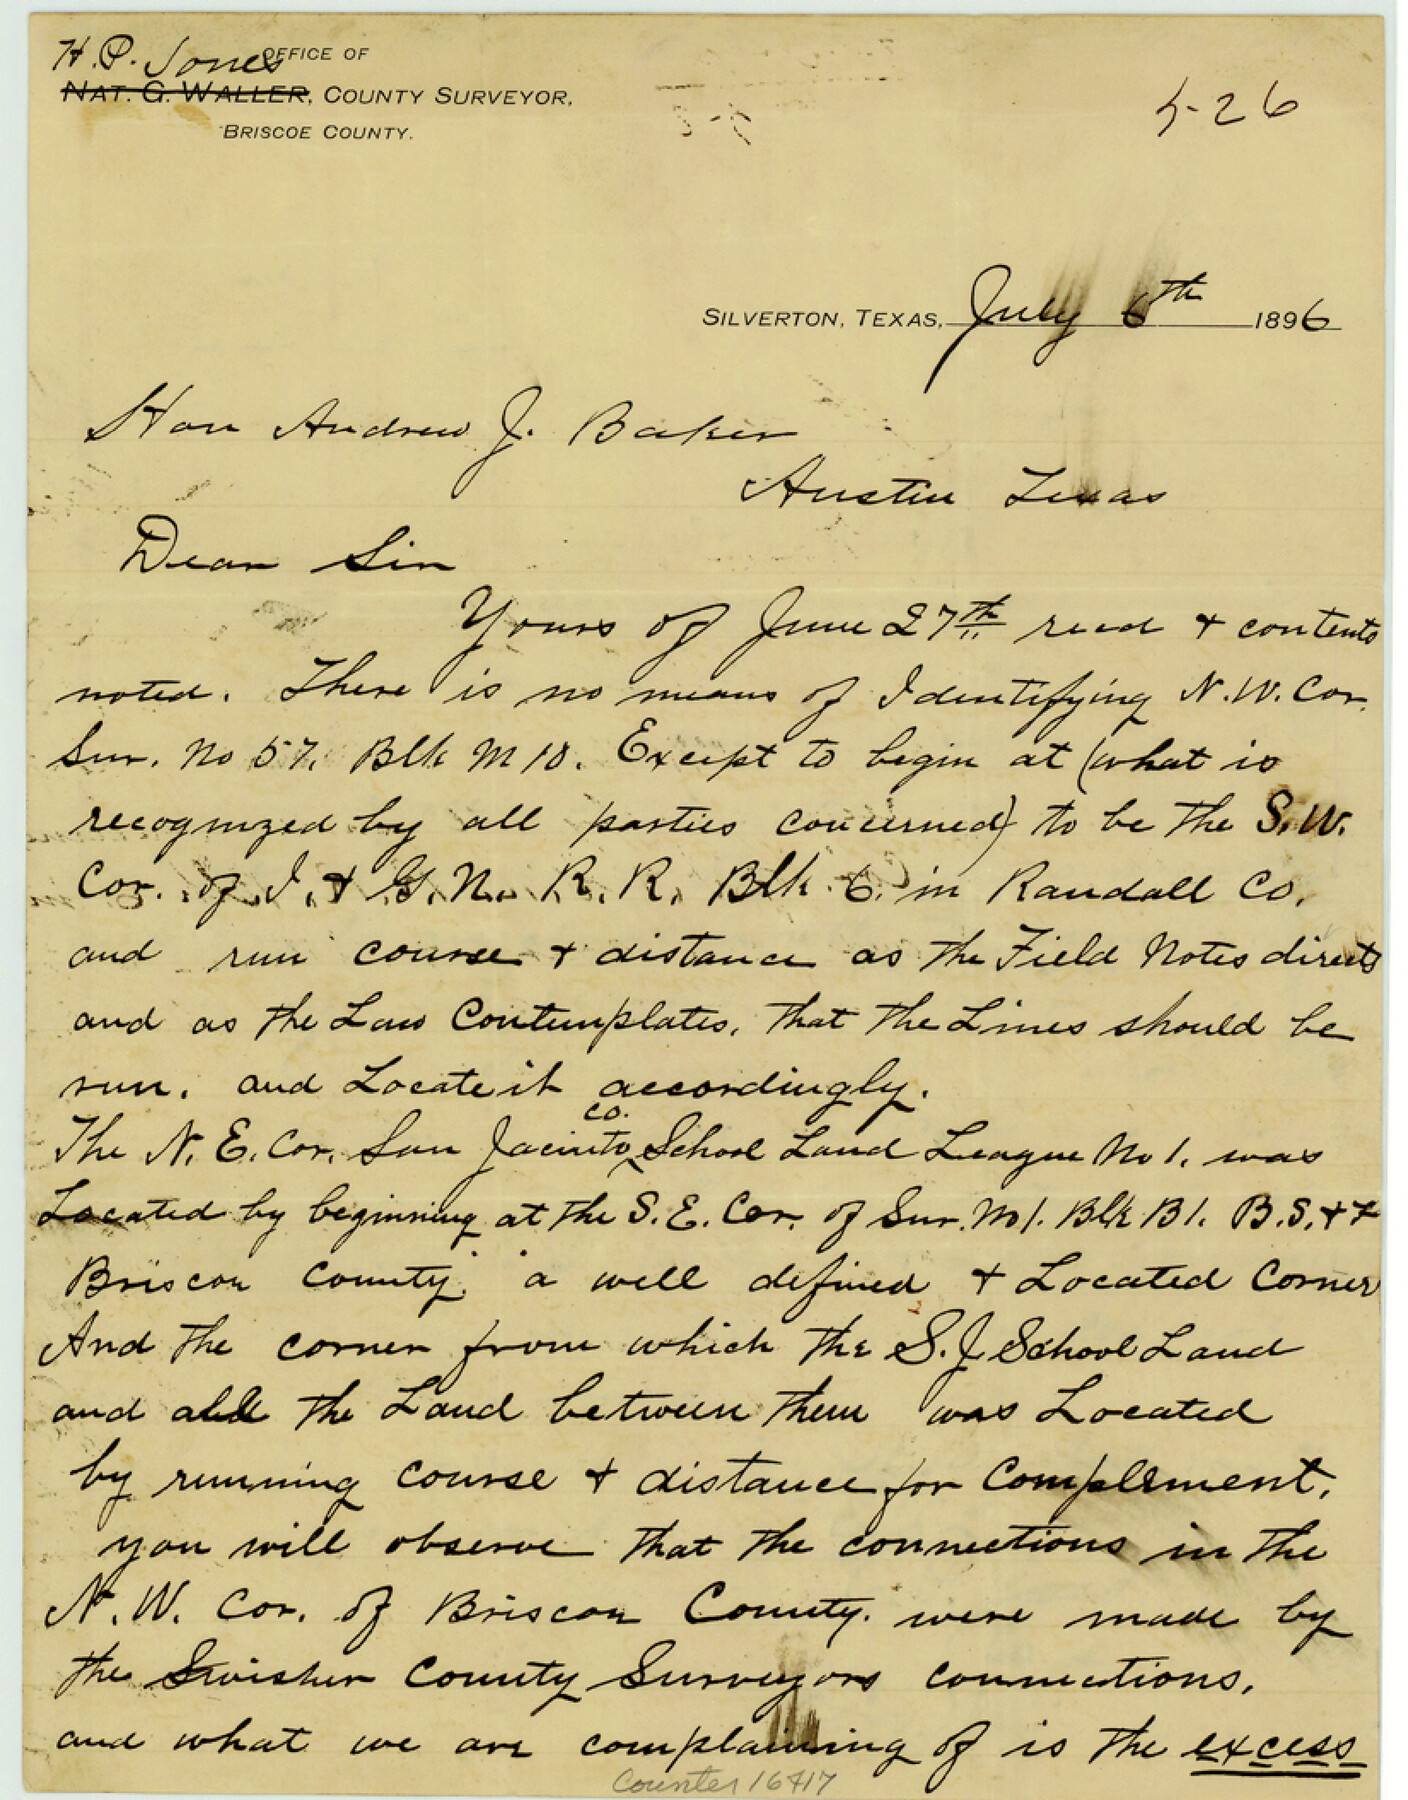 H. P. Jones
OFFICE OF
NAT. G. WALLER, COUNTY SURVEYOR,
BRISCOE COUNTY.
5-26
SILVERTON, TEXAS, July 6th 1896
Hon Andrew J. Baker
Austin Texas
Dear Sir
Yours of June 27th recd & contents
noted. There is no means of Identifying N.W. Cor.
Sur. No 57. Blk M10. Except to begin at (what is
recognized by all parties concerned) to be the S.W.
Cor. of I. & G. N. R. R. Blk 6. in Randall Co.
and run course & distance as the Field Notes directs
and as the Law Contemplates, that the Lines should be
run. and Locate it accordingly.
The N. E. Cor. San Jacinto Co. School Land League No 1. was
Located by beginning at the S. E. Cor. of Sur. No 1. Blk B1. B.S. & F
Briscoe County. a well defined & Located Corner
And the corner from which the S. J School Land
and all the Land between them was Located
by running course & distance for Complement.
you will observe that the connections in the
N. W. Cor. of Briscoe County. were made by
the Swisher County Surveyors connections.
and what we are complaining of is the excess
Counter 16417